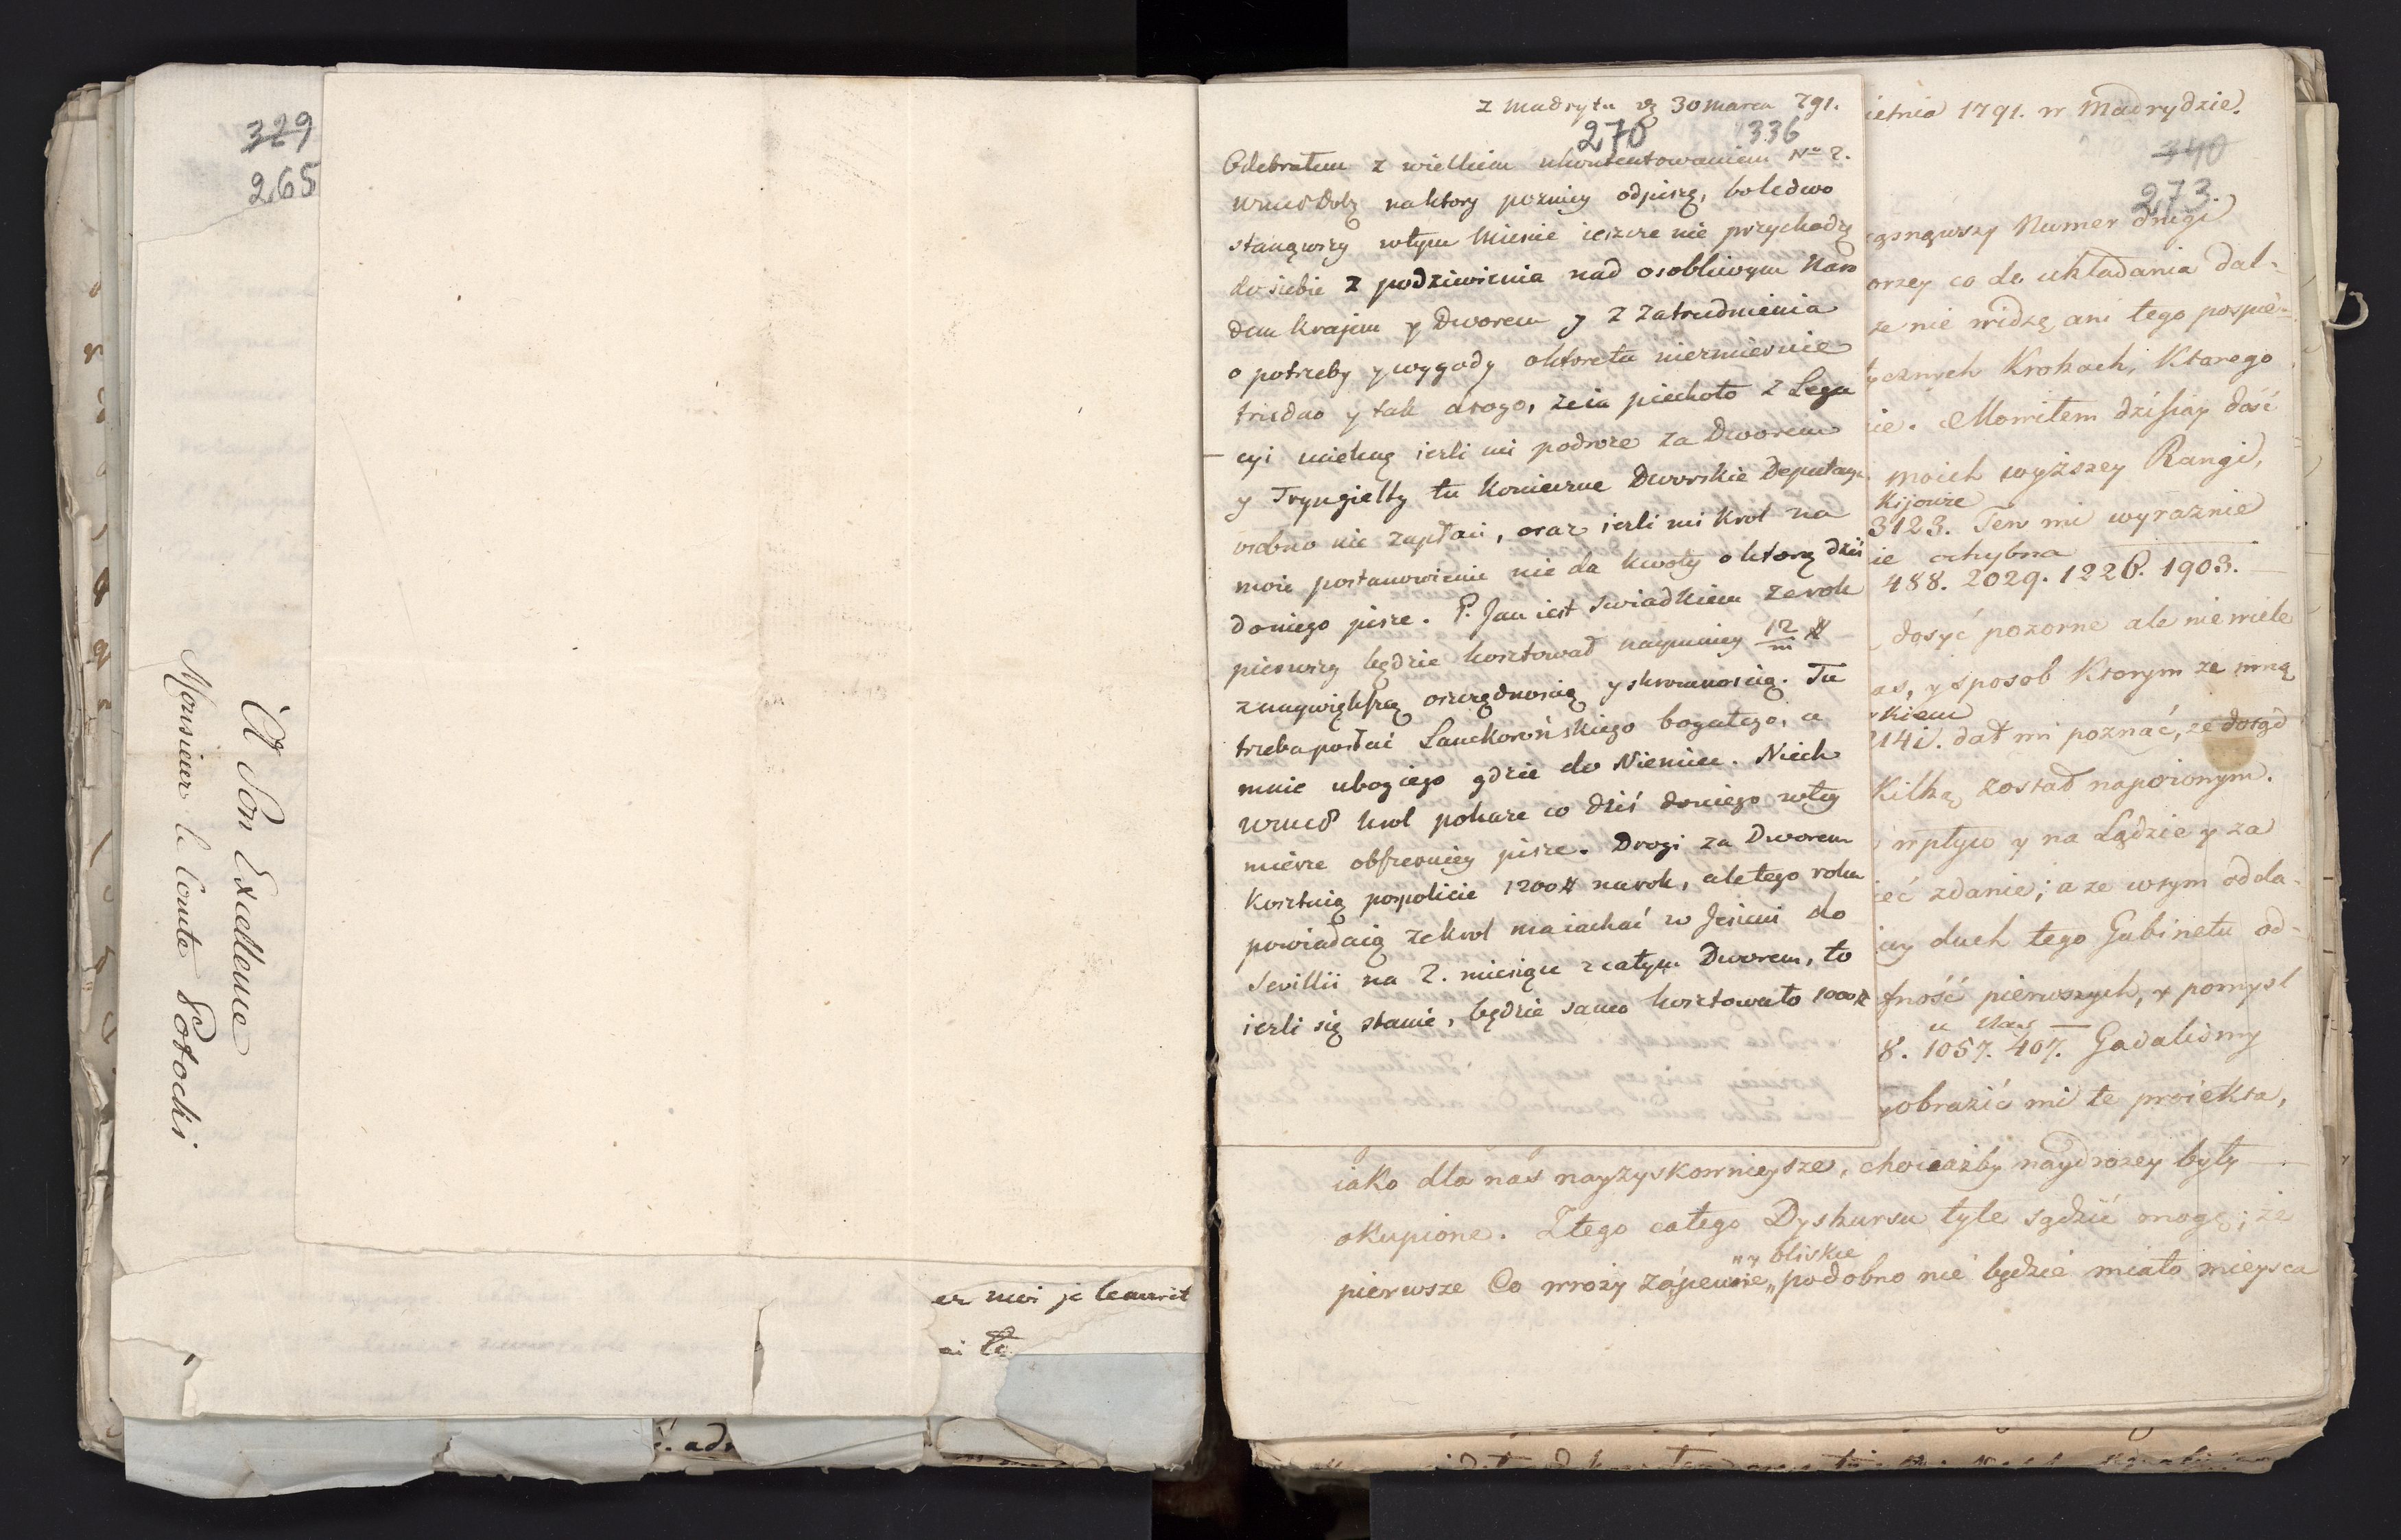 329
265
A Son Excellence
Monsieur le Comte Potocki
er moi je
z Madrytu 30 marca 791.
270 336
Odebrałem z wielkiem ukontentowaniem No 2.
na ktory pozniey odpiszę, bo ledwo
stanąwszy w tym Miescie ieszcze nie przychodzę
do siebie z podziwienia nad osobliwym Naro
dem Krajem y Dworem y z Zatrudnienia
o potrzeby y wygody o ktore tu niezmiernie
trudno y tak drogo, ze ia piechoto z Lega
cyi ucieknę iezli mi podroze za Dworem
y Tryngielty tu konieczne Dworskie Deputacya
osobno nie zapłaci, oraz iezli mi Krol na
moie postanowienie nie da kwoty o ktorą dziś
do niego pisze. P. Jan iest swiadkiem ze rok
pierwszy będzie kosztował naymniey 12/m #
z naywiększą oszczędnoscią y skromnoscią. Tu
trzeba posłać Lanckorońskiego bogatego, a
mnie ubogiego gdzie do Niemiec. Niech
Krol pokaze co dziś do niego w tey
mierze obszerniey pisze. Drogi za Dworem
Kosztuią pospolicie 1200 # na rok, ale tego roku
powiadaią ze krol ma iachać w Jesieni do
Sevillii na 2. miesiące z całym Dworem, to
iezli się stanie, będzie samo kosztowało 1000 #
ietnia 1791. w Madrydzie.
340
273.
Numer drugi
orzey co do układania dal-
ze nie widzę ani tego pospie-
ycznych Krokach, Ktorego
ie. Mowiłem dzisiay dość
moich wyższey Rangi,
Kijowie
3123. Ten mi wyraznie
ie ochybna
488. 2029. 1226. 1903.
dosyć pozorne ale nie wiele
as, y sposob Ktorym ze mną
skiem
214i. dał mi poznać, ze dotąd
Kilką został napoionym.
wpływ y na Lądzie y za
ieć zdanie; a ze wtym odda-
duch tego Gabinetu od-
tność pierwszych, y pomysl
8. 1057. 407. Gadalismy
yobrazić mi te proiekta,
iako dla nas nayzyskownieysze, chociażby naydrozey były
okupione. Z tego całego Dyskursu tyle sądzić mogę; że
„y bliskie
pierwsze Co wroży zapewnie „podobno nie będzie miało mieysca